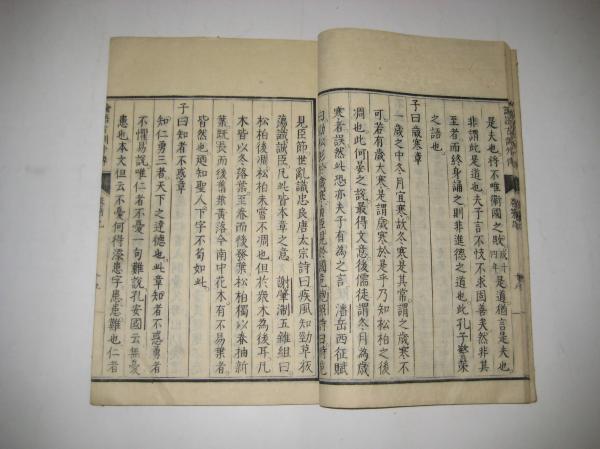 是夫也將不唯衞國之敗
是道猶言是夫也
非謂此是道也夫子言不忮不求固善矣然非其
至者而終身誦之則非進德之道也此孔子
之語也
子曰歲寒章
一歲之中冬月宜寒故冬寒是其常謂之歲寒不
可若有歲大寒是謂歲寒於是乎乃知松柏之後
凋也此何晏之說最得文意後儒徒謂冬月為歲
寒者誤然此恐亦夫子有為之言潘岳西征賦
見臣節世亂識忠良唐太宗詩曰疾風知勁草板
蕩識誠臣凡此皆本章之意謝肇淛五雜組曰
松柏後凋松柏未嘗不凋也但於衆木為後耳凡
木皆以冬落葉至春而後發葉松柏獨以春抽新
葉既長而後舊葉黃落今南中花木有不易葉者
皆然也廼知聖人下字不苟如此
子曰知者不惑章
知仁勇三者天下之達德也此章知者不惑勇者
不懼易說唯仁者不憂一句難說孔安國云無憂
患也本文但云不憂何得添患字患患難也仁者